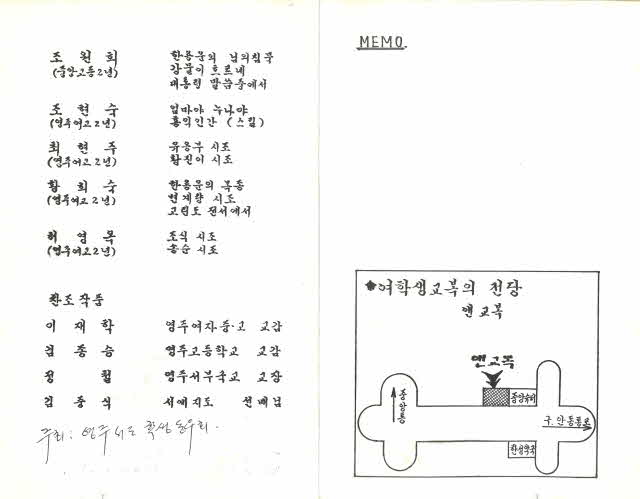 조 원 희 한용운의 님의침묵
(중앙고등2년) 강물이 흐르네
대통령 말씀중에서
조 현 숙 엄마야 누나야
(영주여고2년) 홍익인간 (스킬)
최 현 주 유응부 시조
(영주여고2년) 황진이 시조
황 희 숙 한용운의 복종
(영주여고2년) 변계량 시조
고린도 전서에서
허 영 목 조식 시조
(영주여고2년) 송순 시조
찬조작품
이 재 학 영주여자중·고 교감
김 종 승 영주고등학교 교감
정 철 영주서부국교 교장
김 중 식 서예지도 선배님
주최: 영주서도 학생동우회.
MEMO.
◆여학생교복의 전당
앤교복
앤교복
중앙통
중앙
구.안동통로
한성약국